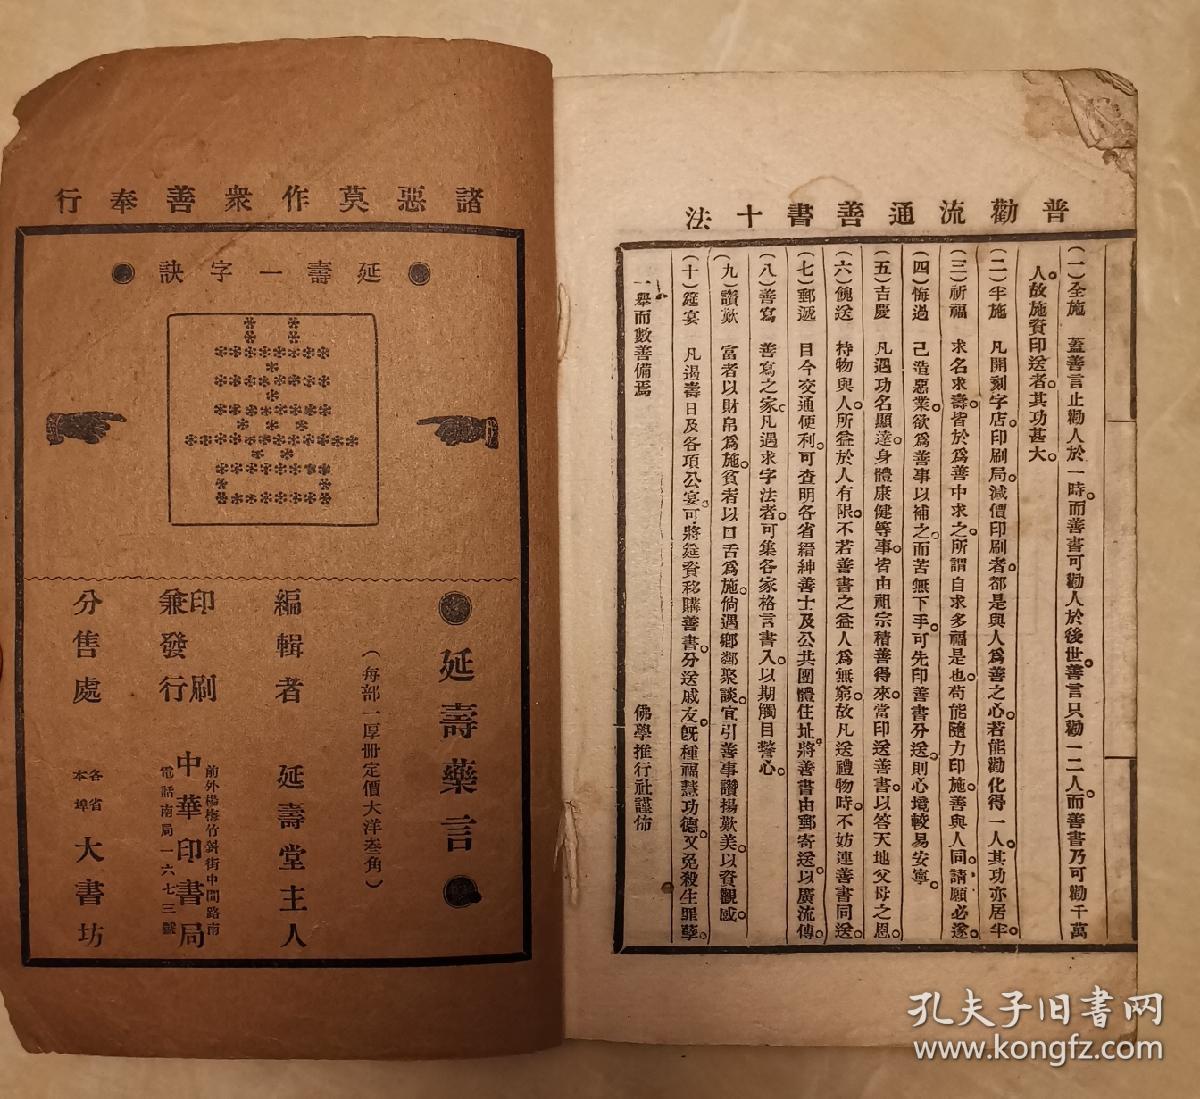 普勸流通善書十法
(一)全施　蓋善言止勸人於一時。而善書可勸人於後世。善言只勸一二人。而善書乃可勸千萬
人。故施資印送者。其功甚大。
(二)半施　凡開刻字店。印刷局。減價印刷者。都是與人爲善之心。若能勸化得一人。其功亦居半。
(三)祈福　求名求壽。皆於爲善中求之。所謂自求多福是也。苟能隨力印施。善與人同。請願必遂。
(四)悔過　己造惡業。欲爲善事以補之。而苦無下手。可先印善書分送。則心境較易安寧。
(五)吉慶　凡遇功名顯達。身體康健等事。皆由祖宗積善得來。當印送善書。以答天地父母之恩。
(六)餽送　持物與人。所益於人有限。不若善書之益人爲無窮。故凡送禮物時。不妨連善書同送。
(七)郵遞　目今交通便利。可查明各省縉紳善士及公共團體住址。將善書由郵寄送。以廣流傳。
(八)善寫　善寫之家。凡遇求字法者。可集各家格言書入。以期觸目警心。
(九)讚歎　富者以財帛爲施。貧者以口舌爲施。倘遇鄉鄰聚談。宜引善事讚揚歎美。以資觀感。
(十)筵宴　凡遇壽日及各項公宴。可將筵資移購善書。分送戚友。旣種福慧功德。又免殺生罪孽。
一舉而數善備焉　佛學推行社謹佈
諸惡莫作衆善奉行
延壽一字訣
延壽藥言
(每部一厚冊定價大洋叁角)
編輯者　延壽堂主人
印刷
兼發行
前外楊梅竹斜街中間路南
中華印書局
電話南局一六七三號
分售處　各省本埠大書坊
孔夫子旧书网
www.kongfz.com